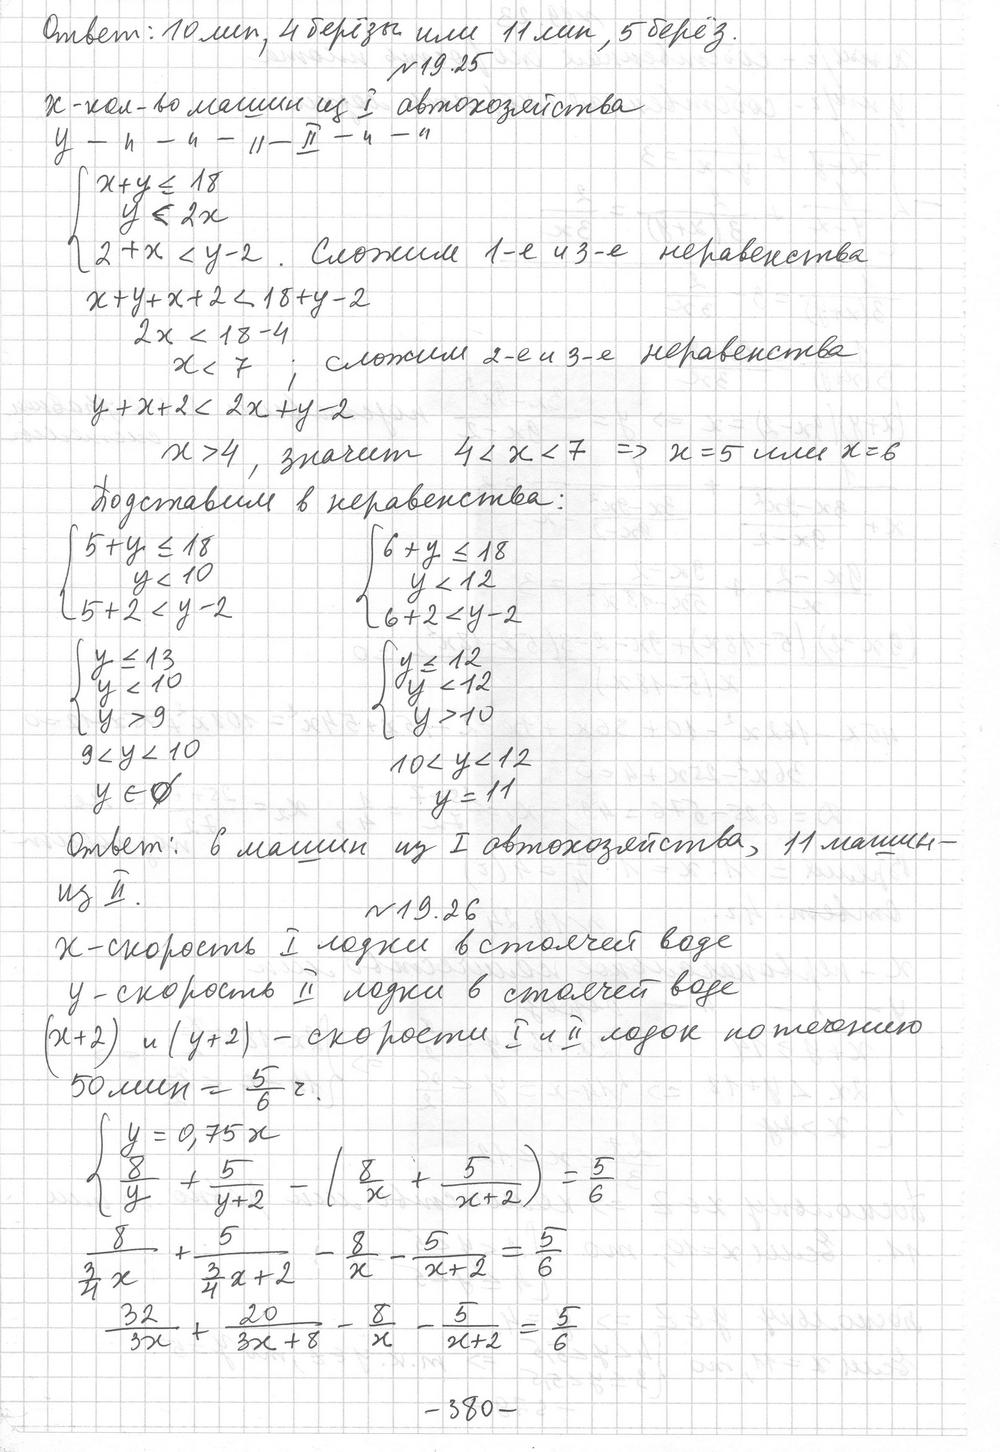 Ответ: 10 лип, 4 берёзы или 11 лип, 5 берёз.
№19.25
x-кол-во машин из I автохозяйства
y – " – " – " – II – " – "
{ x+y ≤ 18
y < 2x
2+x < y-2. Сложим 1-е и 3-е неравенства
x+y+x+2 < 18+y-2
2x < 18-4
x < 7 ; сложим 2-е и 3-е неравенства
y+x+2 < 2x+y-2
x > 4, значит 4 < x < 7 => x=5 или x=6
Подставим в неравенства:
{ 5+y ≤ 18
y < 10
5+2 < y-2
{ y ≤ 13
y < 10
y > 9
9 < y < 10
y ∈ ∅
{ 6+y ≤ 18
y < 12
6+2 < y-2
{ y ≤ 12
y < 12
y > 10
10 < y < 12
y = 11
Ответ: 6 машин из I автохозяйства, 11 машин-
из II.
№19.26
x-скорость I лодки в стоячей воде
y-скорость II лодки в стоячей воде
(x+2) и (y+2) – скорости I и II лодок по течению
50 мин = 5/6 ч.
{ y = 0,75x
8/y + 5/(y+2) - (8/x + 5/(x+2)) = 5/6
8/(3/4 x) + 5/(3/4 x+2) - 8/x - 5/(x+2) = 5/6
32/3x + 20/(3x+8) - 8/x - 5/(x+2) = 5/6
-380-